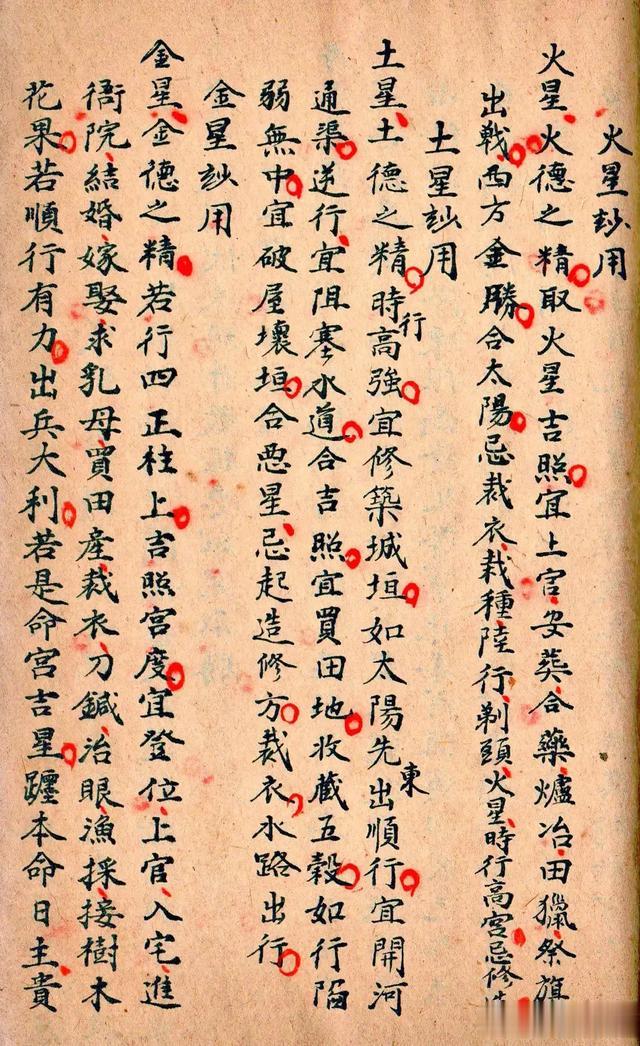 火星玅用
火星火德之精取火星吉照宜上官安葬合藥爐冶田獵祭旗
出戰西方金勝合太陽忌裁衣栽種陸行剃頭火星時行高宮忌修造
土星玅用
土星土德之精時行高強宜修築城垣如太陽先東出順行宜開河
通渠逆行宜阻塞水道合吉照宜買田地收藏五穀如行陷
弱無中宜破屋壞垣合惡星忌起造修方裁衣水路出行
金星玅用
金星金德之精若行四正柱上吉照宮度宜登位上官入宅進
衙院結婚嫁娶求乳母買田產裁衣刀鍼治眼漁採接樹木
花果若順行有力出兵大利若是命宮吉星躔本命日主貴